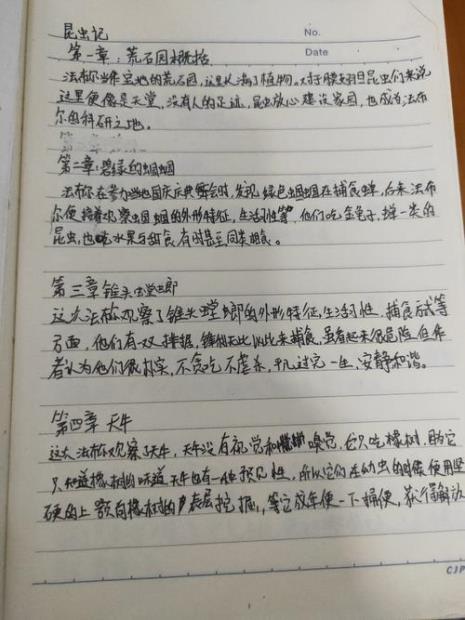 昆虫记
No.
第一章：荒石园概括
Date
法布尔当作宝地的荒石园，这里长满了植物。对于膜翅目昆虫们来说
这里便像是天堂，没有人的足迹，昆虫放心建设家园，也成为法布
尔的科研之地。
第二章：碧绿的蝈蝈
法布尔在参加当地国庆庆典舞会时，发现绿色蝈蝈在捕食蝉，后来法布
尔便接着观察蝈蝈的外形特征，生活习性等，他们吃金龟子，蝉一类的
昆虫，也吃水果与甜食，有时甚至同类相食。
第三章锥头螳螂
这次法布尔观察了锥头螳螂的外形特征，生活习性，捕食方式等
方面，他们有一双，锋利无比以此来捕食，虽看起来很危险，但作
者认为他们很朴实，不贪吃不虐杀，平凡过完一生，安静和谐。
第四章 天牛
这次法布尔观察了天牛，天牛没有视觉和嗅觉，它只吃橡树，因为它
只知道橡树的味道，天牛也有一种预见性，所以它们在幼虫的时候便用坚
硬的上额向橡树的表层挖掘，等它成年便一下捅便，获得解放
CJP